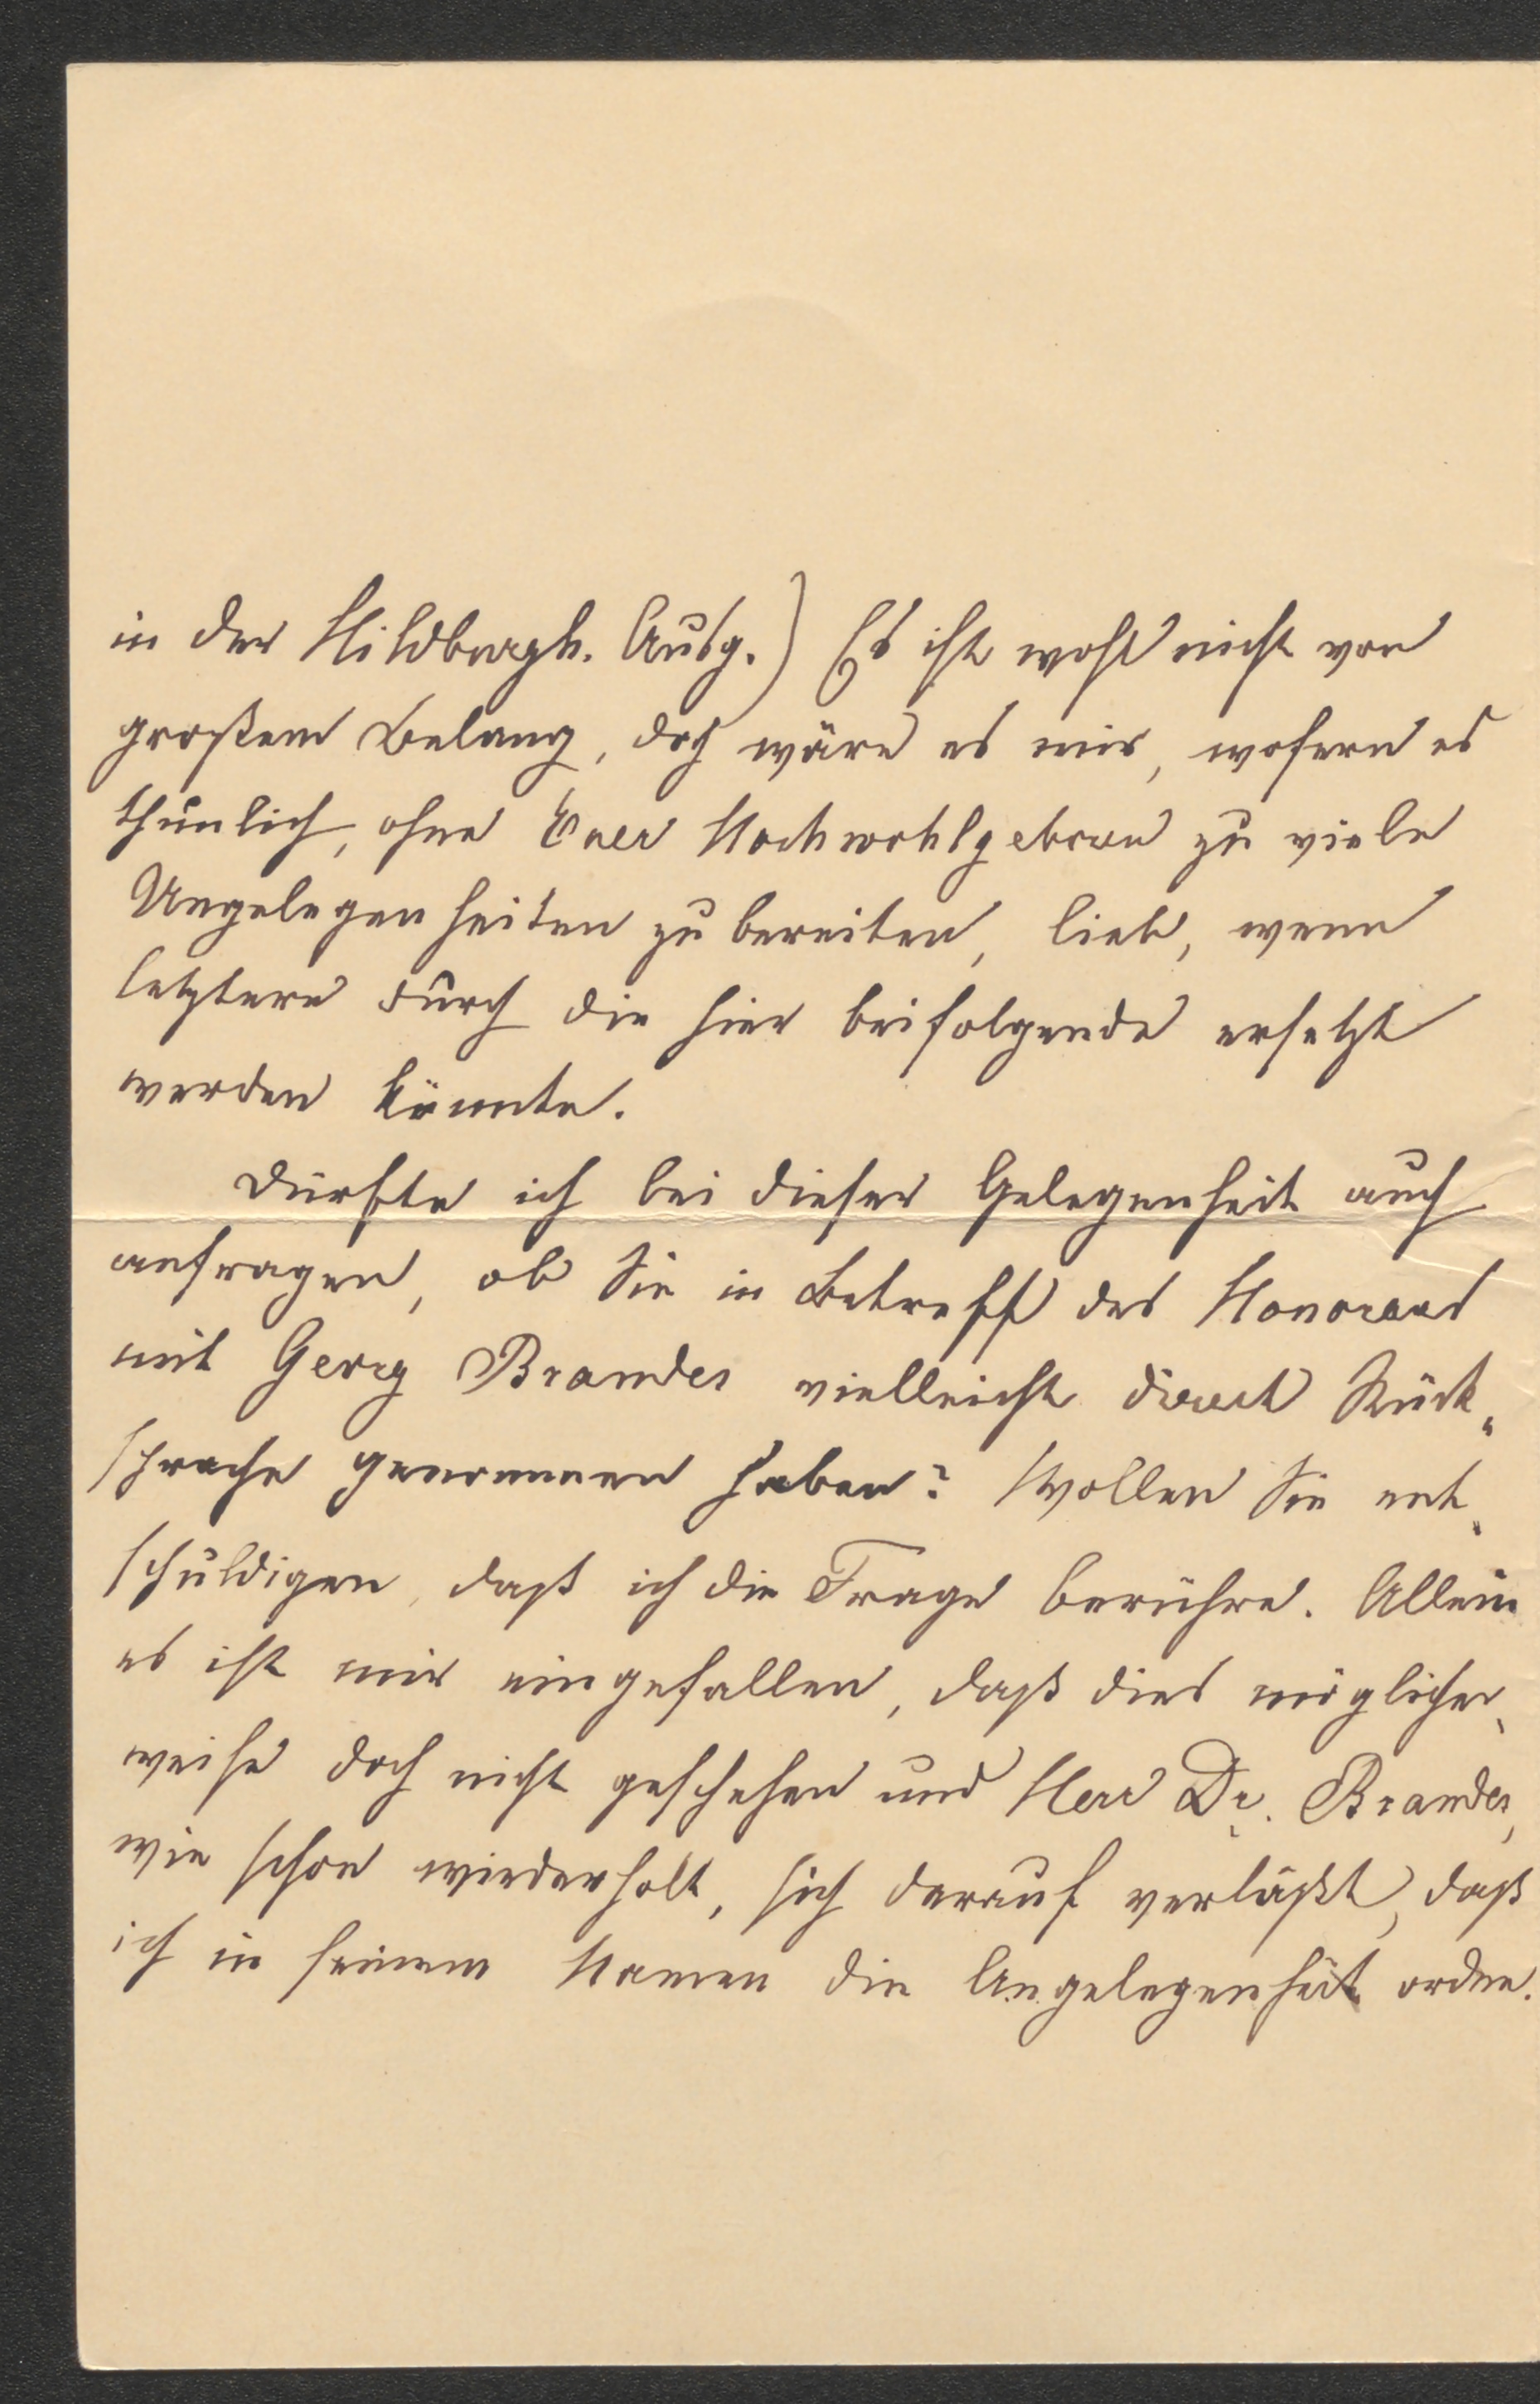 in der Hildburgh. Ausg.) Es ist wohl nicht von
großem Belang, doch wäre es mir, wofern es
thunlich, ohne Euer Hochwohlgeboren zu viele
Ungelegenheiten zu bereiten, lieb, wenn
letztere durch die hier beifolgende ersetzt
werden könnte.
Dürfte ich bei dieser Gelegenheit auch
anfragen, ob Sie in Betreff des Honorars
mit Georg Brandes vielleicht direct Rück„
sprache genommen haben? Wollen Sie ent„
schuldigen, daß ich die Frage berühre. Allein
es ist mir eingefallen, daß dies möglicher„
weise doch nicht geschehen und Herr Dr. Brandes,
wie schon wiederholt, sich darauf verläßt, daß
ich in seinem Namen die Angelegenheit ordne.